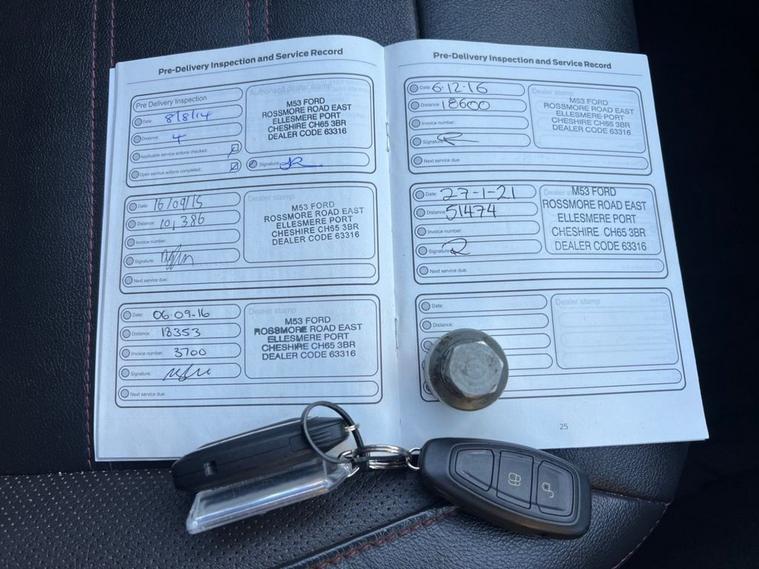 Pre-Delivery Inspection and Service Record
Pre Delivery Inspection
Date: 8/8/14
Distance: 4
Applicable service actions checked:
Open service actions completed:
M53 FORD
ROSSMORE ROAD EAST
ELLESMERE PORT
CHESHIRE CH65 3BR
DEALER CODE 63316
Signature:
Date: 16/09/15
Distance: 10,386
Invoice number:
Signature:
Next service due:
Dealer stamp
M53 FORD
ROSSMORE ROAD EAST
ELLESMERE PORT
CHESHIRE CH65 3BR
DEALER CODE 63316
Date: 06-09-16
Distance: 18353
Invoice number: 3700
Signature:
Next service due:
Dealer stamp
M53 FORD
ROSSMORE ROAD EAST
ELLESMERE PORT
CHESHIRE CH65 3BR
DEALER CODE 63316
Pre-Delivery Inspection and Service Record
Date: 6-12-16
Distance: 18600
Invoice number:
Signature:
Next service due:
Dealer stamp
M53 FORD
ROSSMORE ROAD EAST
ELLESMERE PORT
CHESHIRE CH65 3BR
DEALER CODE 63316
Date: 27-1-21
Distance: 51474
Invoice number:
Signature:
Next service due:
M53 FORD
ROSSMORE ROAD EAST
ELLESMERE PORT
CHESHIRE CH65 3BR
DEALER CODE 63316
Date:
Distance:
Dealer stamp
25